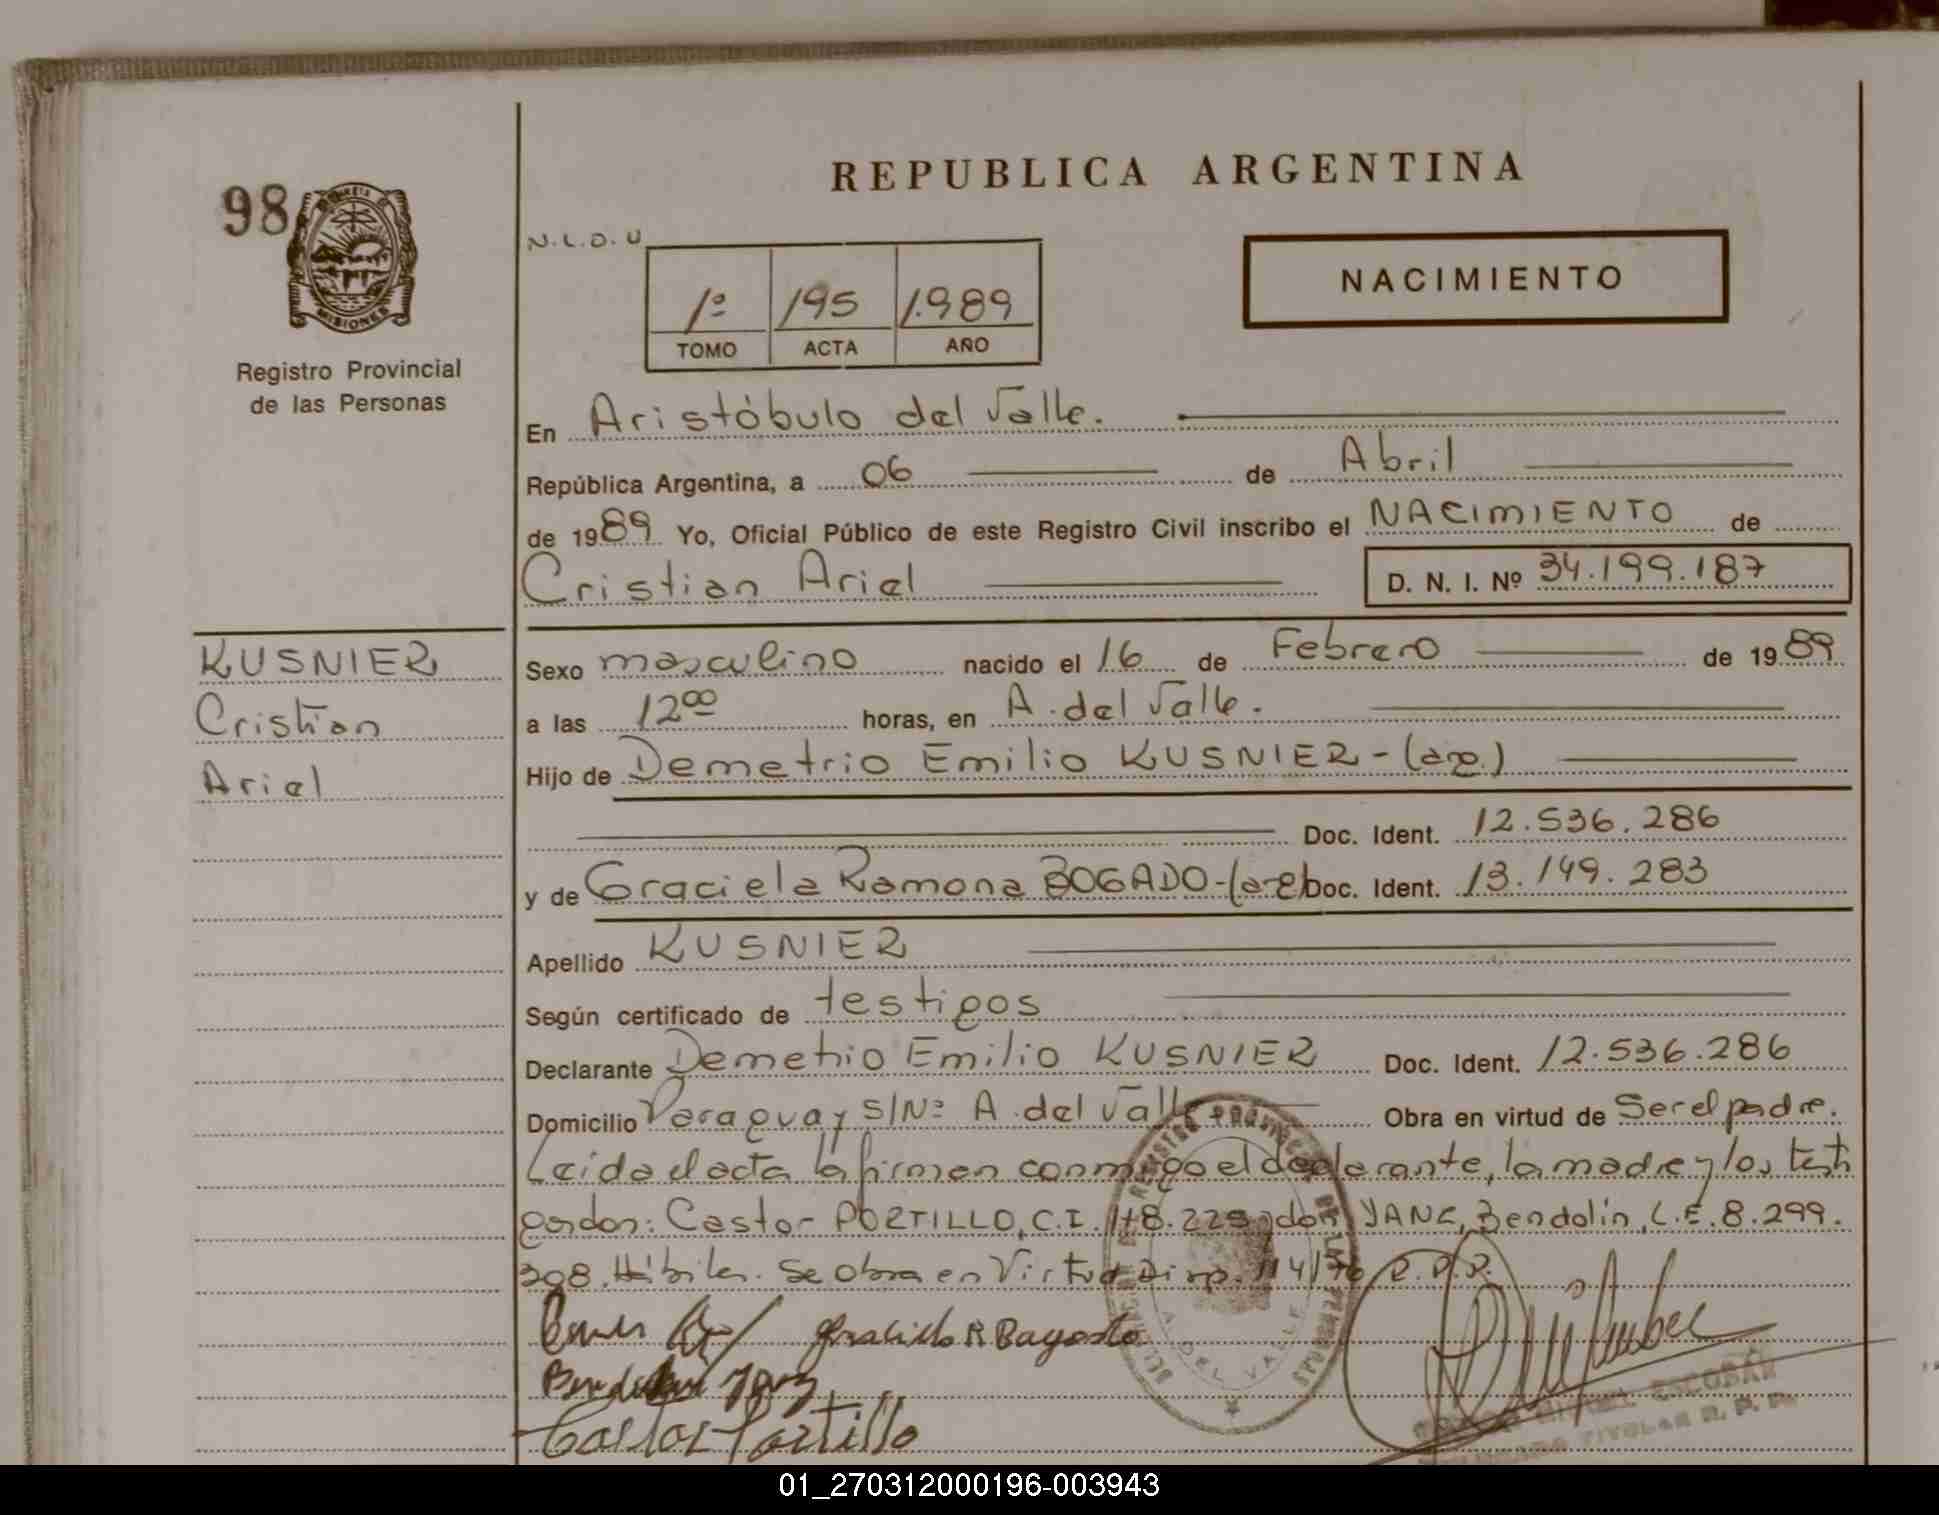 REPUBLICA ARGENTINA
98
MISIONES
Registro Provincial
de las Personas
N.L.O.U
NACIMIENTO
1º 195 1.989
TOMO ACTA AÑO
En Aristóbulo del Valle.
República Argentina, a 06 de Abril
de 1989 Yo, Oficial Público de este Registro Civil inscribo el NACIMIENTO de
Cristian Ariel D. N. I. Nº 34.199.187
KUSNIER
Cristian
Ariel
Sexo masculino nacido el 16 de Febrero de 1989
a las 1200 horas, en A. del Valle.
Hijo de Demetrio Emilio KUSNIER - (arg.)
Doc. Ident. 12.536.286
y de Graciela Ramona BOGADO - (arg) Doc. Ident. 13.149.283
Apellido KUSNIER
Según certificado de testigos
Declarante Demetrio Emilio KUSNIER Doc. Ident. 12.536.286
Domicilio Paraguay S/Nº A. del Valle Obra en virtud de Ser el padre.
Leida el acta la firman conmigo el declarante, la madre y los testi
gos don: Castor PORTILLO, C.I. don Bendolin, L.E. 8.299.
308. Hábiles. Se Obra en Virtud Disp. 114/76 R.P.P.
REGISTRO PROVINCIAL DE LAS PERSONAS
A. DEL VALLE
Castor Portillo
MIGUEL ESCOBAR
TITULAR R. P. P.
01_270312000196-003943